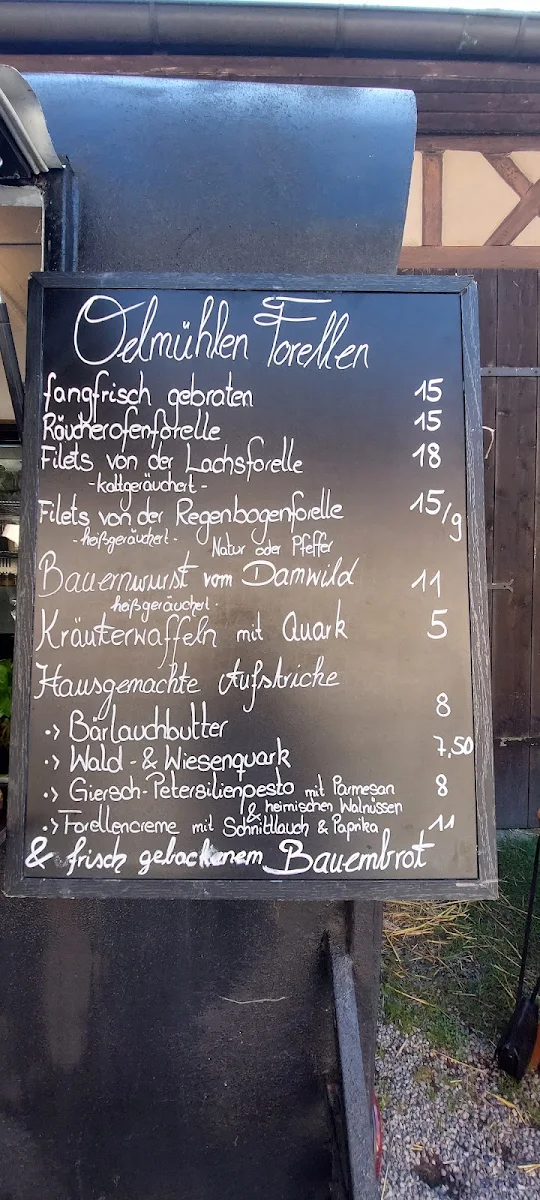 Oelmühlen Forellen
fangfrisch gebraten 15
Räucherofenforelle 15
Filets von der Lachsforelle 18
- kaltgeräuchert -
Filets von der Regenbogenforelle 15/g
- heißgeräuchert - Natur oder Pfeffer
Bauernwurst vom Damwild 11
heißgeräuchert -
Kräuterwaffeln mit Quark 5
Hausgemachte Aufstriche
·> Bärlauchbutter 8
·> Wald- & Wiesenquark 7,50
·> Giersch-Petersilienpesto mit Parmesan 8
& heimischen Walnüssen
·> Forellencreme mit Schnittlauch & Paprika 11
& frisch gebackenem Bauernbrot